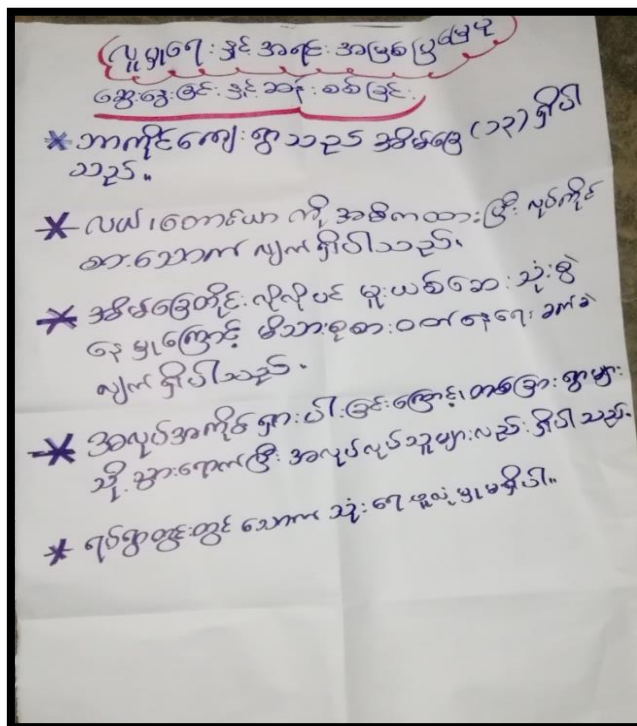 လူမှုရေး နှင့် အရင်း အမြစ်ပြမြေပုံ
ဆွေးနွေးခြင်း နှင့် ဆန်းစစ်ခြင်း
* ဘာကိုင်ကျေးရွာသည် အိမ်ခြေ (၁၃) ရှိပါ
သည်။
* လယ်၊ တောင်ယာ ကို အဓိကထားပြီး လုပ်ကိုင်
စားသောက် လျက်ရှိပါသည်။
* အိမ်ခြေတိုင်းလိုလိုပင် မူးယစ်ဆေး သုံးစွဲ
နေမှုကြောင့် မိသားစုစားဝတ်နေရေး ခက်ခဲ
လျက်ရှိပါသည်။
* အလုပ်အကိုင်ရှားပါးခြင်းကြောင့်၊ တစ်ခြားရွာများ
သို့ သွားရောက်ပြီး အလုပ်လုပ်သူများလည်းရှိပါသည်။
* ရပ်ရွာတွင်းတွင် သောက်သုံးရေ ဖူလုံမှုမရှိပါ။